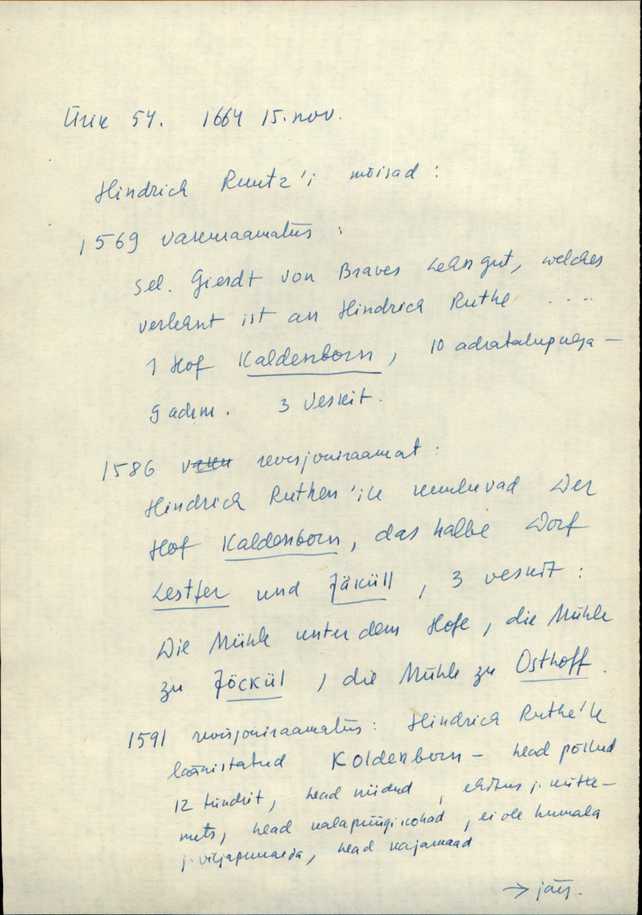 Ürik 54. 1664 15. nov.
Hindrich Ruutz'i mõisad :
1569 vakuraamatus :
Sel. Gierdt von Braves Lehn gut, welches
verlehnt ist an Hindrich Ruthe ....
1 Hof Kaldenborn, 10 adratalupoega -
9 adm. 3 veskit.
1586 vaku revisjoniraamat :
Hindrich Ruthen'ile kuuluvad Der
Hof Kaldenborn, das halbe Dorf
Lestfer und Jäküll, 3 veskit :
Die Mühle unter dem Hofe, die Mühle
zu Jöckül, die Mühle zu Osthoff.
1591 revisjoniraamatus : Hindrich Ruthe'le
läänistatud Koldenborn - head põllud
12 tündrit, head niidud, ehitus j. kütte-
mets, head kalapüügikohad, ei ole humala
j. viljapuuaeda, head karjamaad
→ järg.